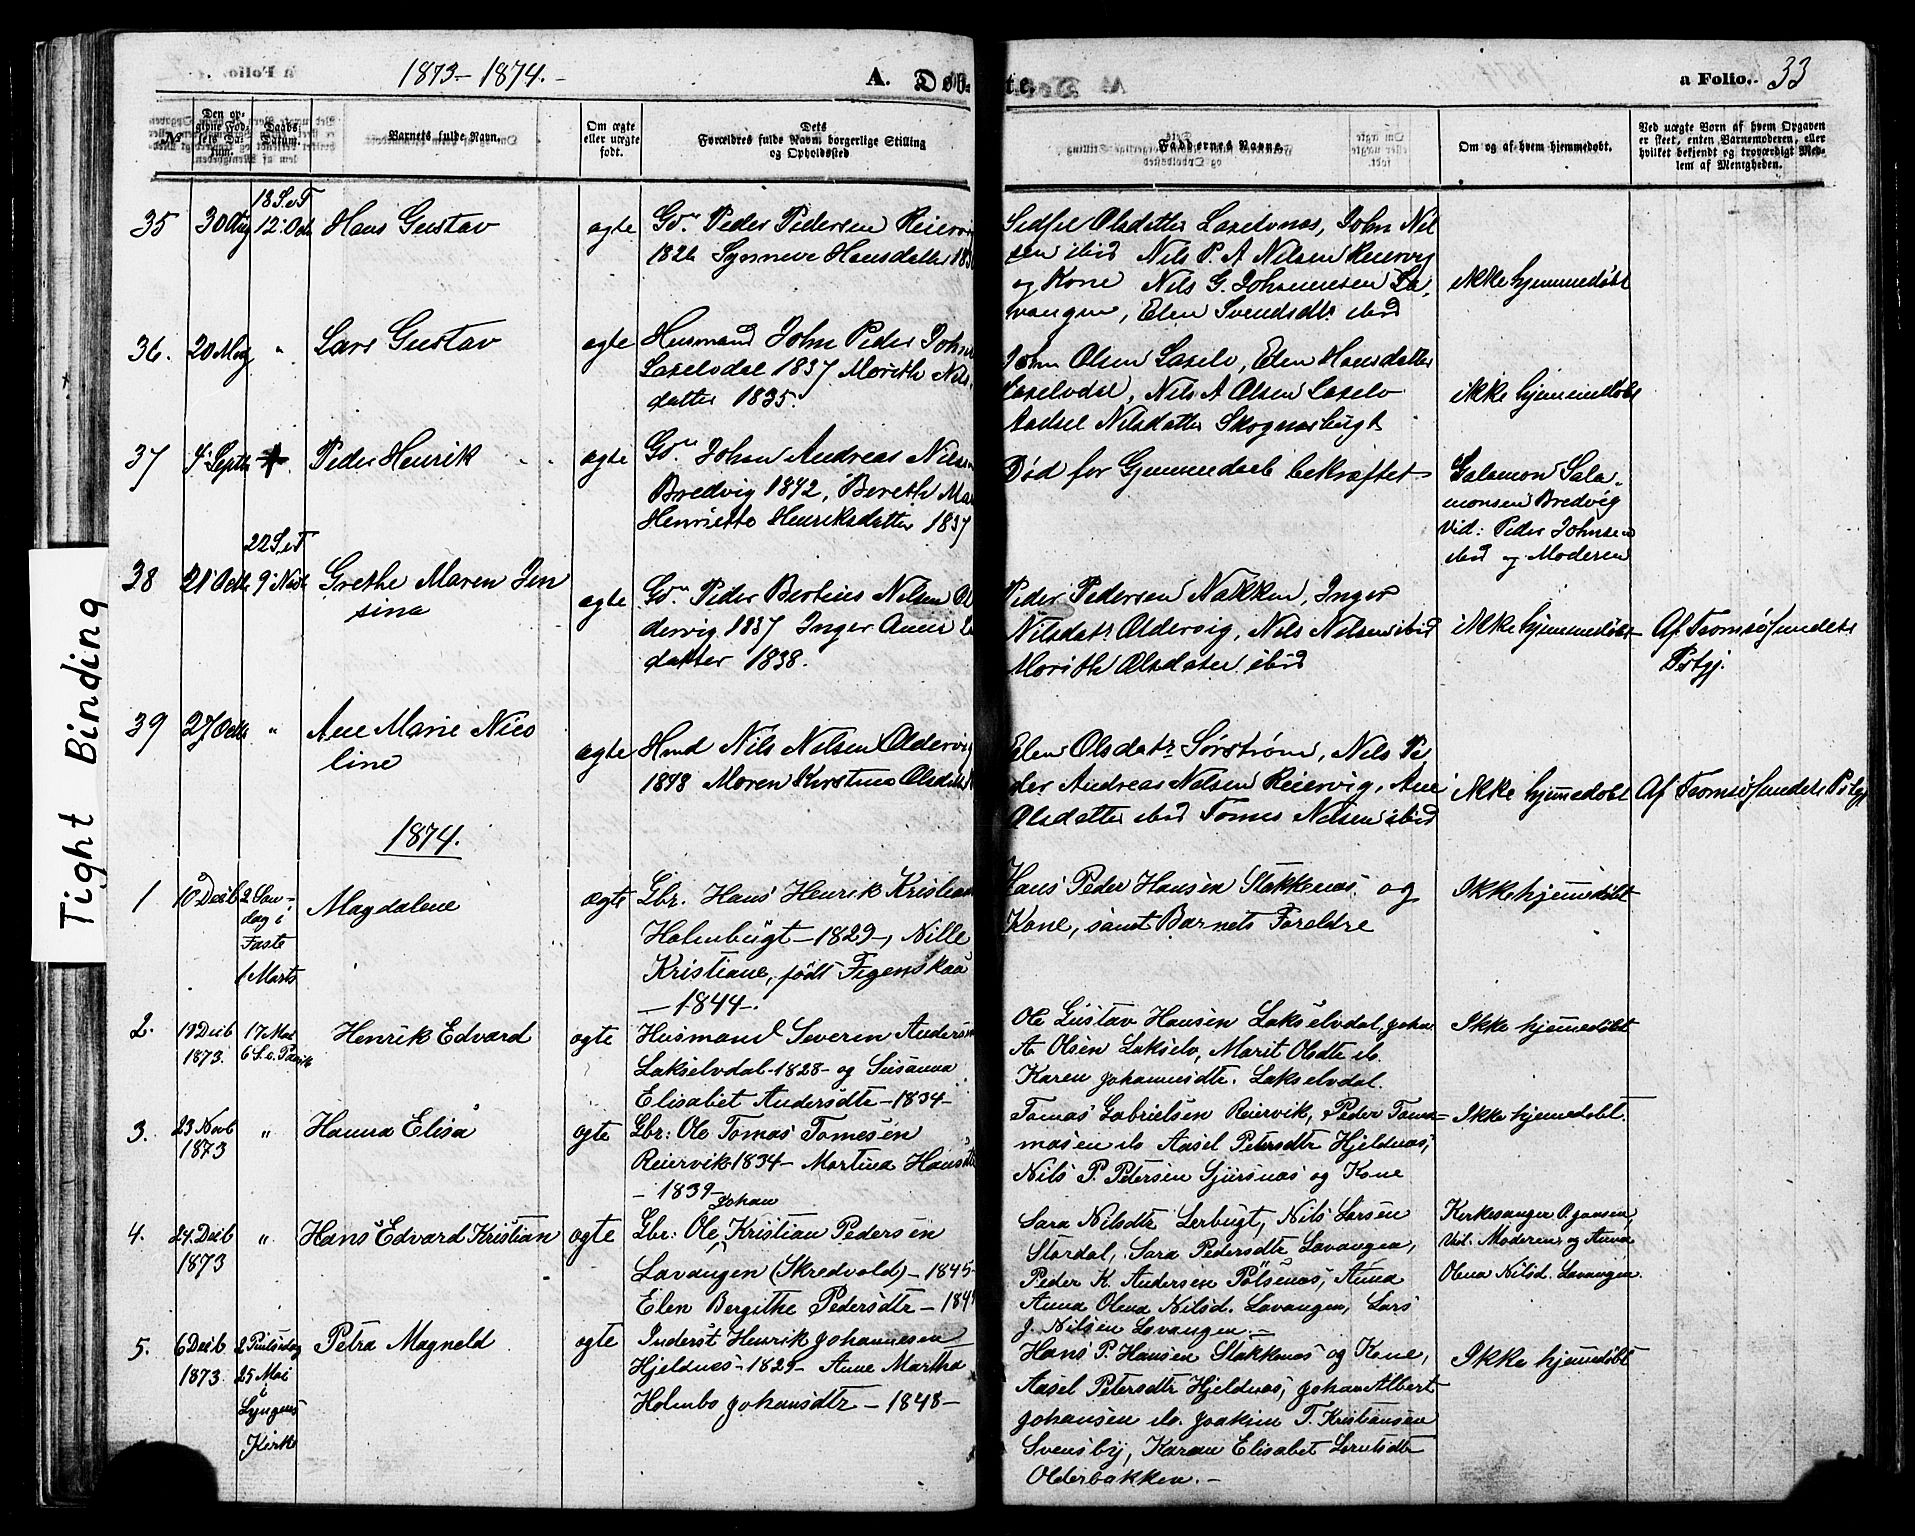 1873-1874.
A. Døb
te.
a Folio. 33
No
Den opgivne Fødsels Datum.
Daabs Datum.
Barnets fulde Navn.
Om ægte eller uægte født.
Dets Forældres fulde Navn, borgerlige Stilling og Opholdssted
Faddernes Navne.
Om og af hvem hjemmedøbt.
Ved uægte Born af hvem Opgaven er skeet, enten Barnemoderen, eller hvilket bekjendt og troværdigt Medlem af Menigheden.
Tight Binding
18 S e T
35 30 Aug 12' Oct Hans Gustav
ægte
Gd. Peder Pedersen Reiervig
1826 Synneve Hansdatter
Sedsel Olsdatter Laxelvnæs, John Nil
sen ibid Nils P. A Nilsen Reiervig
og Kone Nils G. Johannesen La-
vangen, Elen Svendsdt. ibid
ikke hjemmedøbt
36. 20 " Lars Gustav
ægte
Husmand John Peder John
Laxelvdal 1837 Moreth Nils
datter 1835.
John Olsen Laxelv, Elen Hansdatter
Laxelvdal, Nils A Olsen Laxelv
Nilsdatter Skognæsbugt
ikke hjemmedøbt
37 4' Septb Peder Henrik
ægte
Gd. Johan Andreas Nilsen
Bredvig 1842, Bereth
Henriette Henriksdatter 1837
Død før Gjemmedaab bekræftet
Salamon Sala-
monsen Bredvig
Vid: Peder Johnsen
ibid og Moderen
22 S e T
38 21' Octb 9' Novb Grethe Maren Jen
sine
ægte
Gd. Peder Bertius Nilsen Ol
dervig 1837 Inger Anne
datter 1838.
Peder Pedersen Nakken, Inger
Nilsdatr Oldervig, Nils Nilsen ibid
Morith Olsdater ibid
ikke hjemmedøbt
Af Tromsøsundets
Prstgj.
39 27 Octb " Ane Marie Nico
line
ægte
Hmd Nils Nilsen Oldervig
1848 Maren Kirstine Olsdatter
Elen Olsdatr Sørstrøm, Nils Pe
der Andreas Nilsen Reiervig, Ane
Olsdatter ibid Tomas Nilsen ibid
ikke hjemedøbt
Af Tromsøsundets Prstgj
1874.
1 10 Decb 2 Søn-
dag i
Faste
1 Marts
Magdalene
ægte
Gbr. Hans Henrik Kristian
Holmbugt - 1829-, Nille
Kristiane, født Figenskau
- 1844-
Hans Peder Hansen Stakkenæs og
Kone, samt Barnets Forældre
Ikke hjemedøbt
2. 18 Decb
1873.
17 Mai
6 S. e. Paask
Henrik Edvard
ægte
Husmand Severin Andersen
Lakselvdal - 1828 - og Susanna
Elisabet Andersdtr - 1834 -
Ole Gustav Hansen Lakselvdal, Johan
A. Olsen Lakselv, Marit Olsdtr ib.
Karen Johannesdtr. Lakselvdal.
Ikke hjemedøbt
3. 23 Novb
1873
" Hanna Elisa
ægte
Gbr: Ole Tomas Tomesen
Reiervik 1834 - Martina Hansdtr
- 1839 -
Tomas Gabrielsen Reiervik, Peder Tom-
masen ib Aasel Petersdtr Hjeldnæs,
Nils P. Petersen Sjursnæs og Kone
Ikke hjemedøbt.
4. 24. Decb
1873
" Hans Edvard Kristian
ægte
Johan
Gbr: Ole Kristian Pedersen
Lavangen (Skredvold) - 1845 -
Elen Bergithe Pedersdtr -
Sara Nilsdtr Lerbugt, Nils Larsen
Stordal, Sara Pedersdtr Lavangen,
Peder K. Andersen Pølsenæs, Anna
Anna Olena Nilsd. Lavangen, Lars
J. Nilsen Lavangen. -
Kirkesanger O. Jansen
Vid. Moderen og Anna
Olena Nilsd. Lavangen.
5. 6 Decb
1873.
2 Pintsedag
25 Mai
i
Lyngens
Kirke
Petra Magneld
ægte
Inderst Henrik Johannesen
Hjeldnes - 1829 - Anne Martha
Holmbo Johansdtr - 1848 -
Hans P. Hansen Stakkenæs og Kone,
Aasel Petersdtr Hjeldnæs, Johan Albert
Johansen ib. Joakim T. Kristiansen
Svensby, Karen Elisabet Berntsdtr
Olderbakken. -
Ikke hjemedøbt